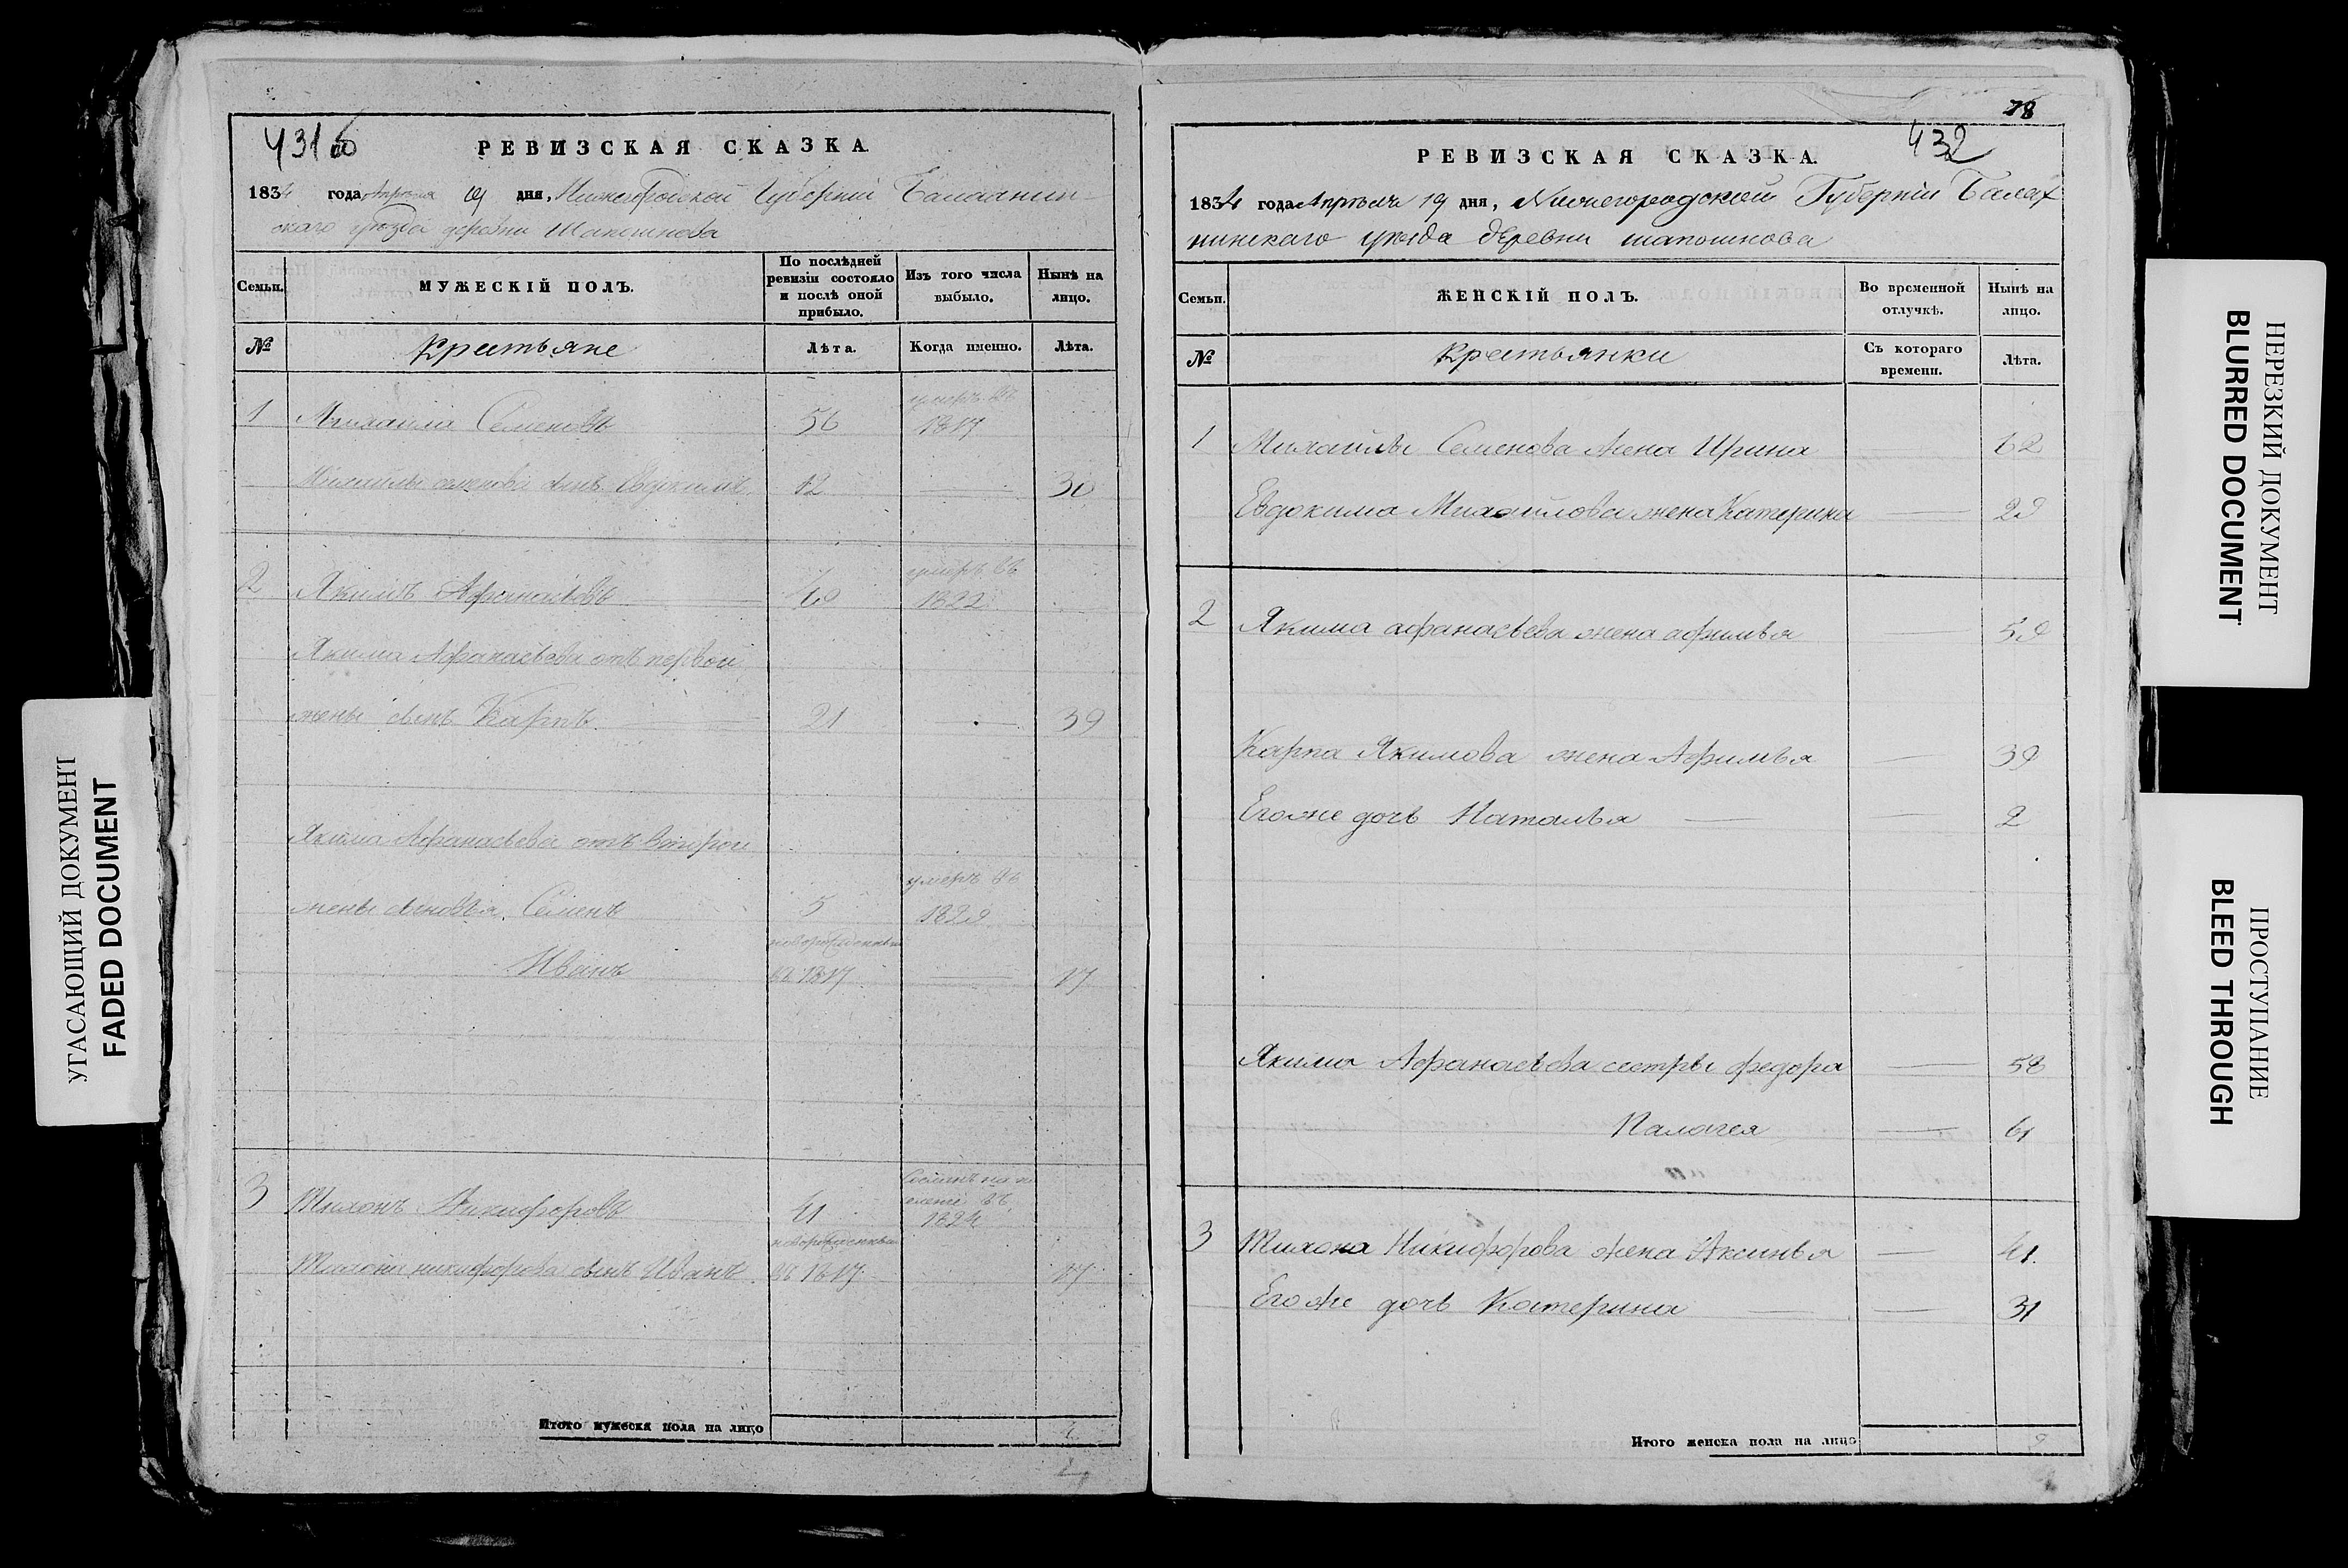 431об
РЕВИЗСКАЯ СКАЗКА.
1834 года Апреля 19 дня, Нижегородской Губернiи Балахнин-
скаго уѣзда деревни Шапошнова
Семьи.
МУЖЕСКIЙ ПОЛЪ.
По послѣдней ревизiи состояло и послѣ оной прибыло.
Изъ того числа выбыло.
Нынѣ на лицо.
№
Крестьяне
Лѣта.
Когда именно.
Лѣта.
1 Михаила Семеновъ 56 умеръ въ 1817
Михаилы семенова сынъ Евдокимъ 12 — 30
2 Якимъ Афанасьевъ 40 умеръ въ 1822
Якима Афанасьева отъ первой
жены сынъ Карпъ 21 — 39
Якима Афанасьева отъ второй
жены сыновья Семенъ 5 умеръ въ
Иванъ новорожденный въ 1817 — 17
3 Тихонъ Никифоровъ 41 въ 1824
Тихона никифорова сынъ Иванъ новорожденный въ 1817 17
Итого мужеска пола на лицо
78
432
РЕВИЗСКАЯ СКАЗКА.
1834 года Апреля 19 дня, Нижегородской Губернiи Балах
нинскаго уѣзда деревни шапошнова
Семьи.
ЖЕНСКIЙ ПОЛЪ.
Во временной отлучкѣ.
Нынѣ на лицо.
№
Крестьянки
Съ котораго времени.
Лѣта.
1 Михайлы Семенова жена Ирина — 62
Евдокима Михайлова жена Катерина — 29
2 Якима афанасьева жена афимья — 59
Карпа Якимова жена Афимья — 39
Егоже дочь Наталья — 2
Якима Афанасьева сестры федора — 58
Палагея — 61
3 Тихона Никифорова жена Аксинья — 41
Егоже дочь Катерина — 31
Итого женска пола на лицо 9
УГАСАЮЩИЙ ДОКУМЕНТ
FADED DOCUMENT
НЕРЕЗКИЙ ДОКУМЕНТ
BLURRED DOCUMENT
ПРОСТУПАНИЕ
BLEED THROUGH